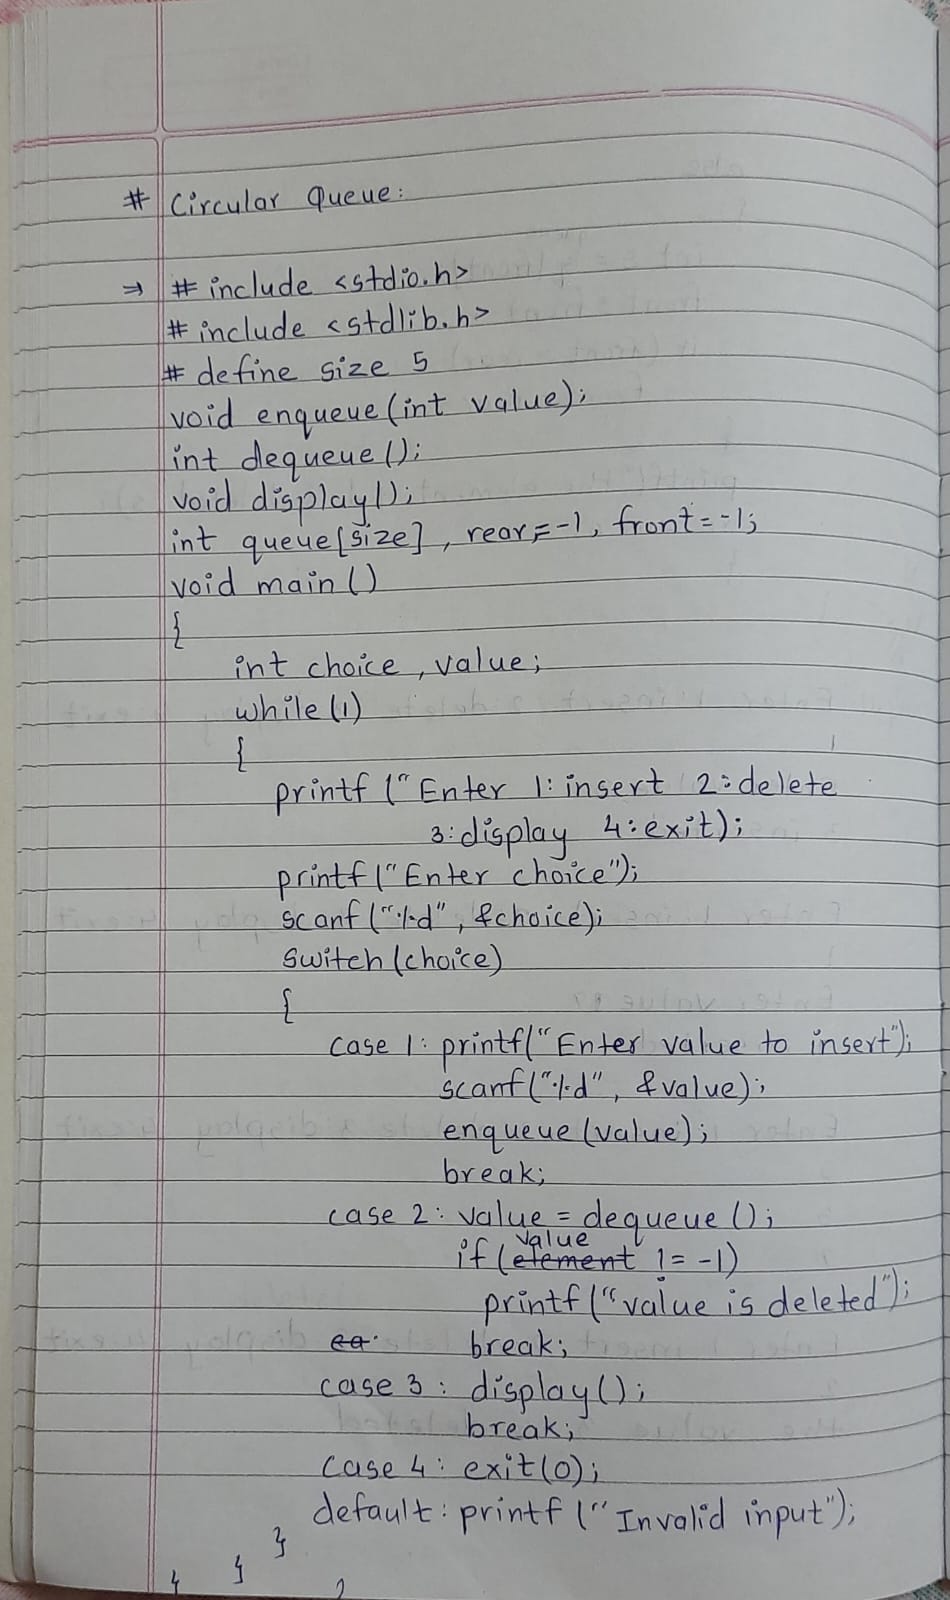 # Circular Queue:
⇒ # include <stdio.h>
# include <stdlib.h>
# define size 5
void enqueue(int value);
int dequeue();
void display();
int queue[size], rear=-1, front=-1;
void main()
{
int choice, value;
while(1)
{
printf("Enter 1: insert 2:delete
3:display 4:exit);
printf("Enter choice");
scanf("%d", &choice);
switch(choice)
{
case 1: printf("Enter value to insert");
scanf("%d", &value);
enqueue(value);
break;
case 2: value = dequeue();
value
if(element != -1)
printf("value is deleted");
ca break;
case 3: display();
break;
case 4: exit(0);
default: printf("Invalid input");
}
}
}